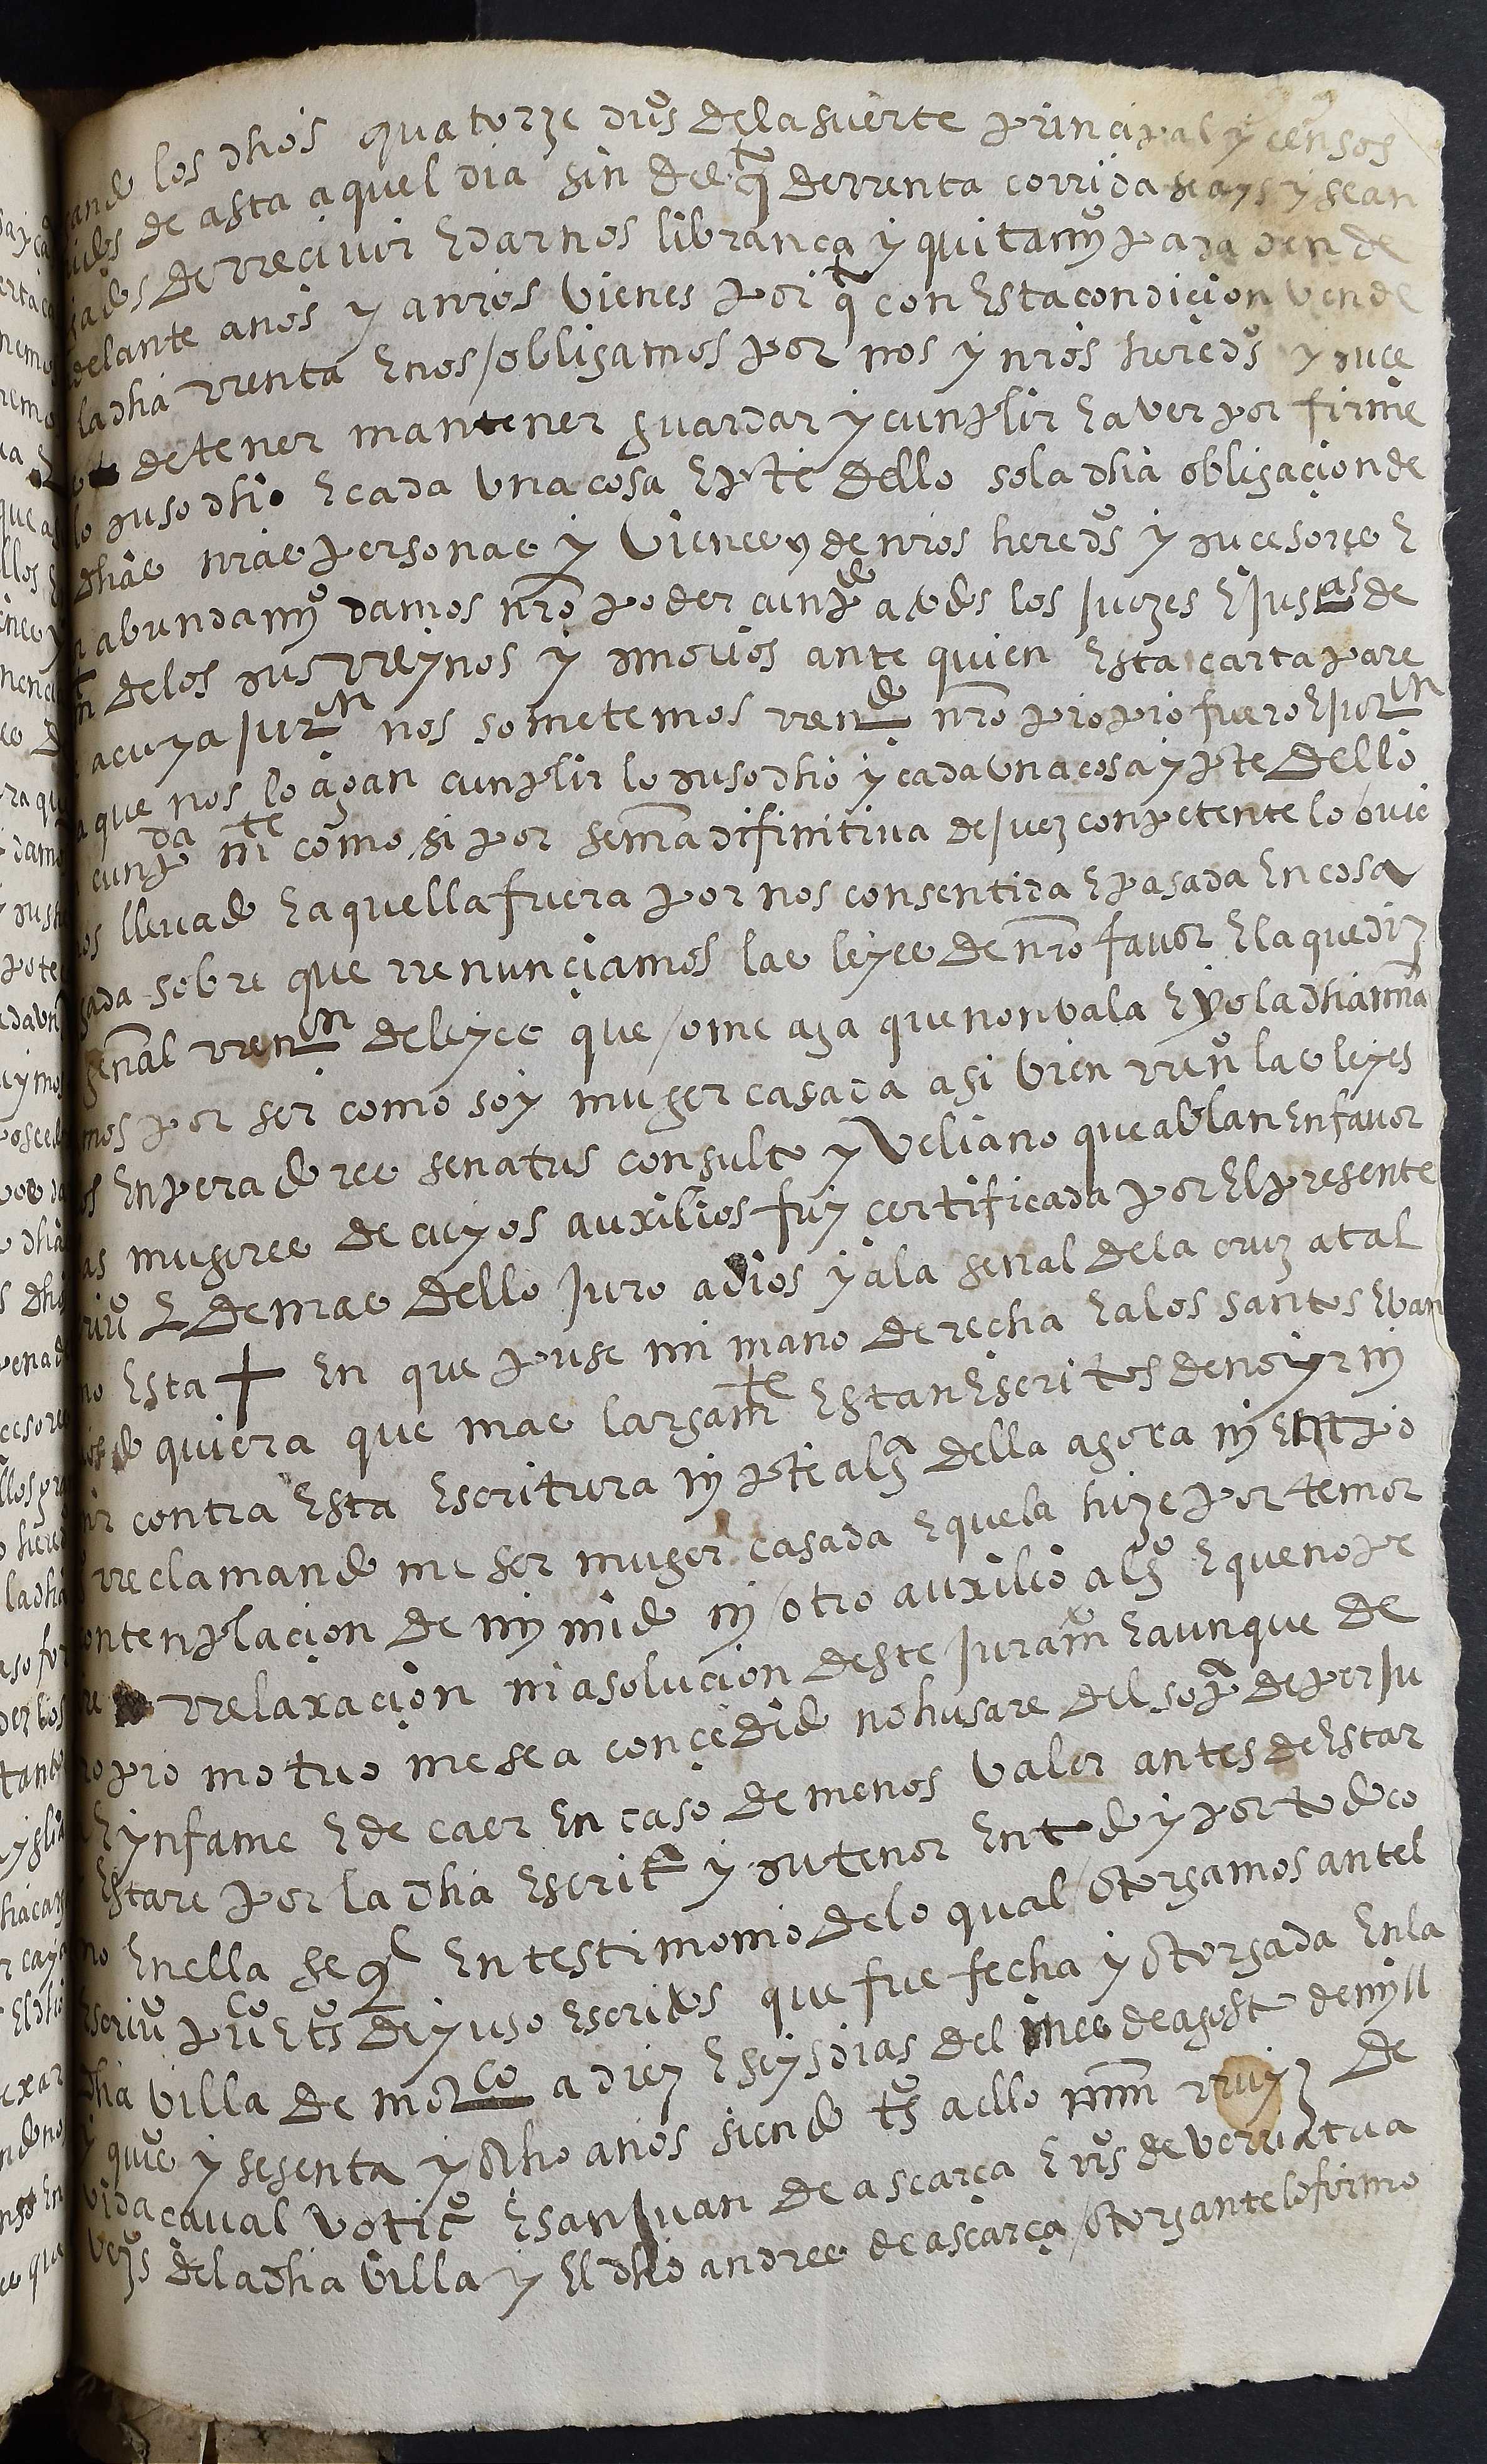 los dhos quatorze dus dela suerte principal y censos
de asta aquel dia sin dee q̃ de rrenta corrida seays y sean
de rrecivir E darnos librança y quitamyº para dende
delante anos y a nros vienes por q̃ con Esta condiçion vende
la dha rrenta E nos / obligamos por nos y nros heredºs y suce
de tener mantener guardar y cunplir E aver por firme
lo suso dho E cada vna cosa E pte dello so la dha obligaçion de
dhas nras personas y vienes y de nros heredºs y sucesores E
abundamyº damos nro poder cunpdº a todos los Juezes E Jusas de
delos sus rreynos y señorios ante quien Esta carta pare
a cuya Juron nos sometemos rrendº nro propio fuero E Juron
que nos lo agan cunplir lo suso dho y cada vna cosa y pte dello
cunpda mte como si por sema difinitiva de Juez conpetente lo / ovie
llevado E aquella fuera por nos consentida E pasada En cosa
sobre que rrenunçiamos las leyes de nro favor E la que diz
genal rrenon de leyes que / ome aga que non vala E yo la dha
mos por ser como soy muger casada asi vien rrenº las leyes
Enperadores senatus consulto y Veliano que ablan En favor
mugeres de cuyos auxilios fuy certificada por El presente
E demas dello Juro a dios y a la señal de la cruz a tal
Esta + En que puse mi mano derecha E a los santos Evan
quiera que mas largamte Estan Escritos de no yr ni
contra Esta Escritura ni pte alga della agora ni En tpo
rreclamando me ser muger casada E que la hize por temor
contenplacion de mi mido ni / otro auxilio algº E que no pe
rrelaxaçion ni asolucion deste Juramtº E aunque de
propio motuo me sea conçedido no husare del so pa de perju
E ynfame E de caer En caso de menos valer antes de Estar
Estare por la dha Escrita y su tenor En todo y por todo co
mo En ella se qe En testimonio delo qual / otorgamos antel
Escriuº puco E tsº de yuso Escritos que fue fecha y otorgada En la
dha villa de moco a diez E seys dias del mes de agosto de myll
y quisº y sesenta y ocho años siendo tsº a ello rruyz de
Esan Juan de ascarça E de verriatua
vezsº de la dha villa y El dho andres de ascarça / otorgante lo firmo